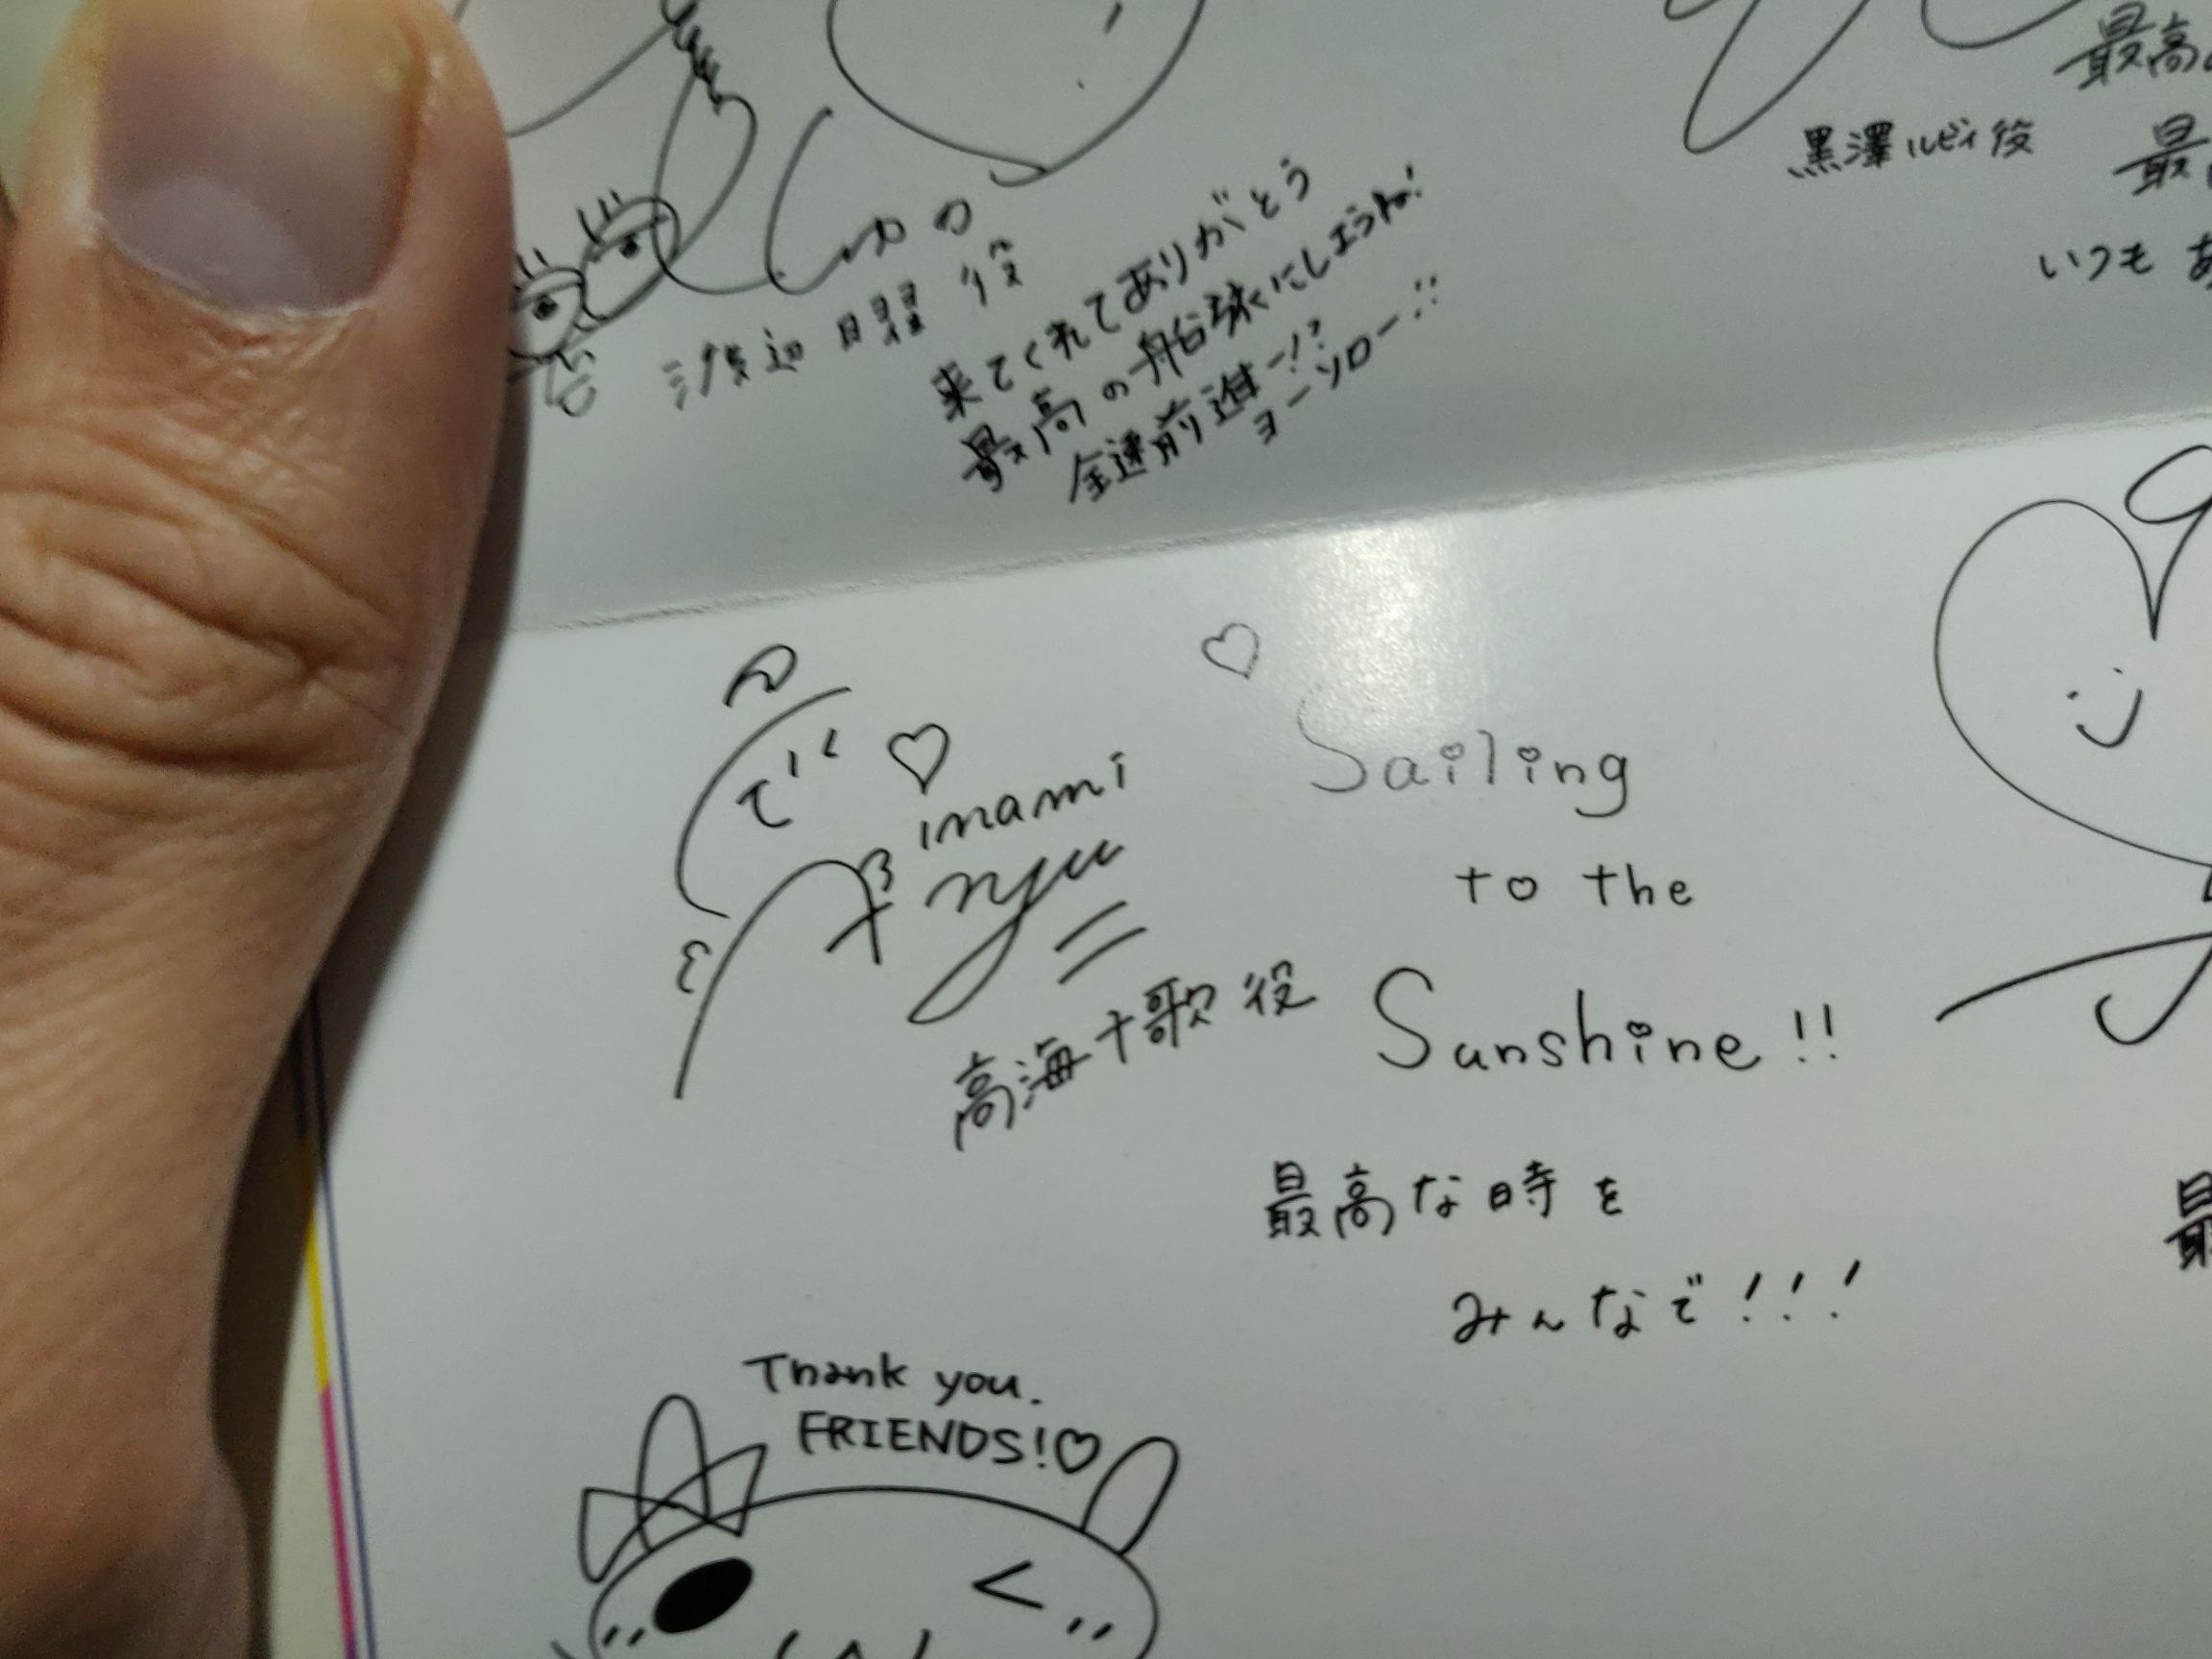 最高
黒澤ルビィ役
最
いつも あ
渡辺 曜 役
来てくれてありがとう
最高の船旅にしようね!
全速前進ー!?
ヨーソロー!!
inami
anju
高海千歌 役
Sailing
to the
Sunshine!!
最高な時を
みんなで!!!
最
Thank you.
FRIENDS!♡